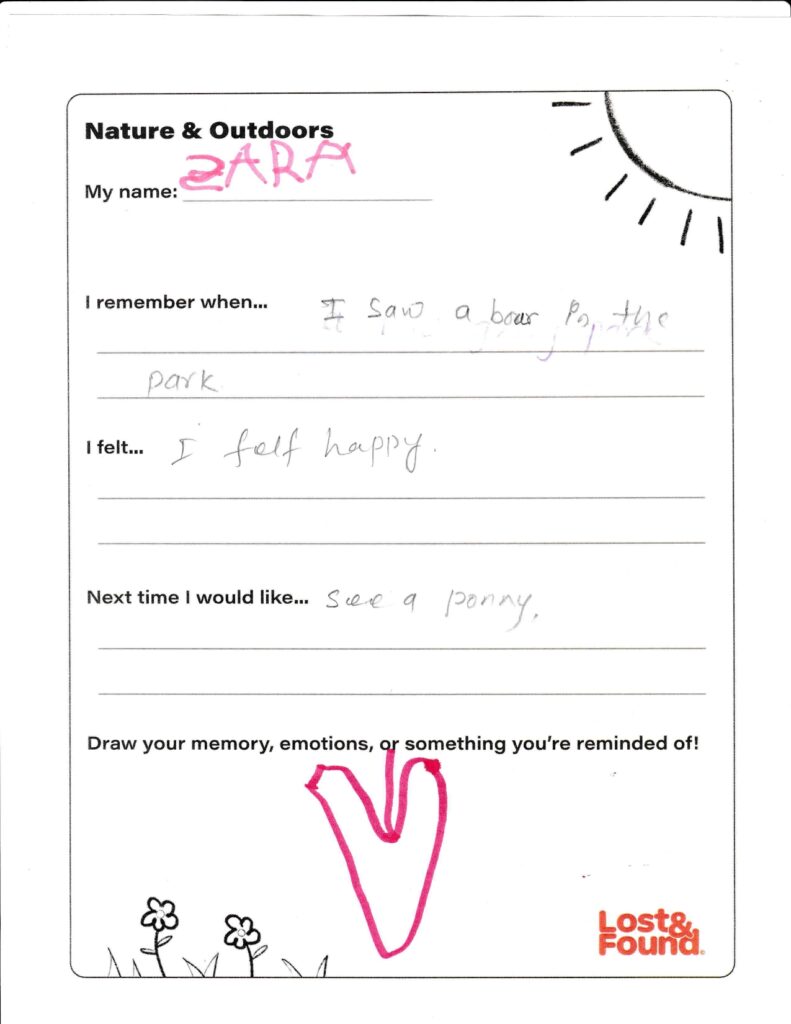 Nature & Outdoors
My name: ZARA
I remember when... I saw a bear in the
park
I felt... I felf happy.
Next time I would like... see a ponny.
Draw your memory, emotions, or something you're reminded of!
Lost&
Found®